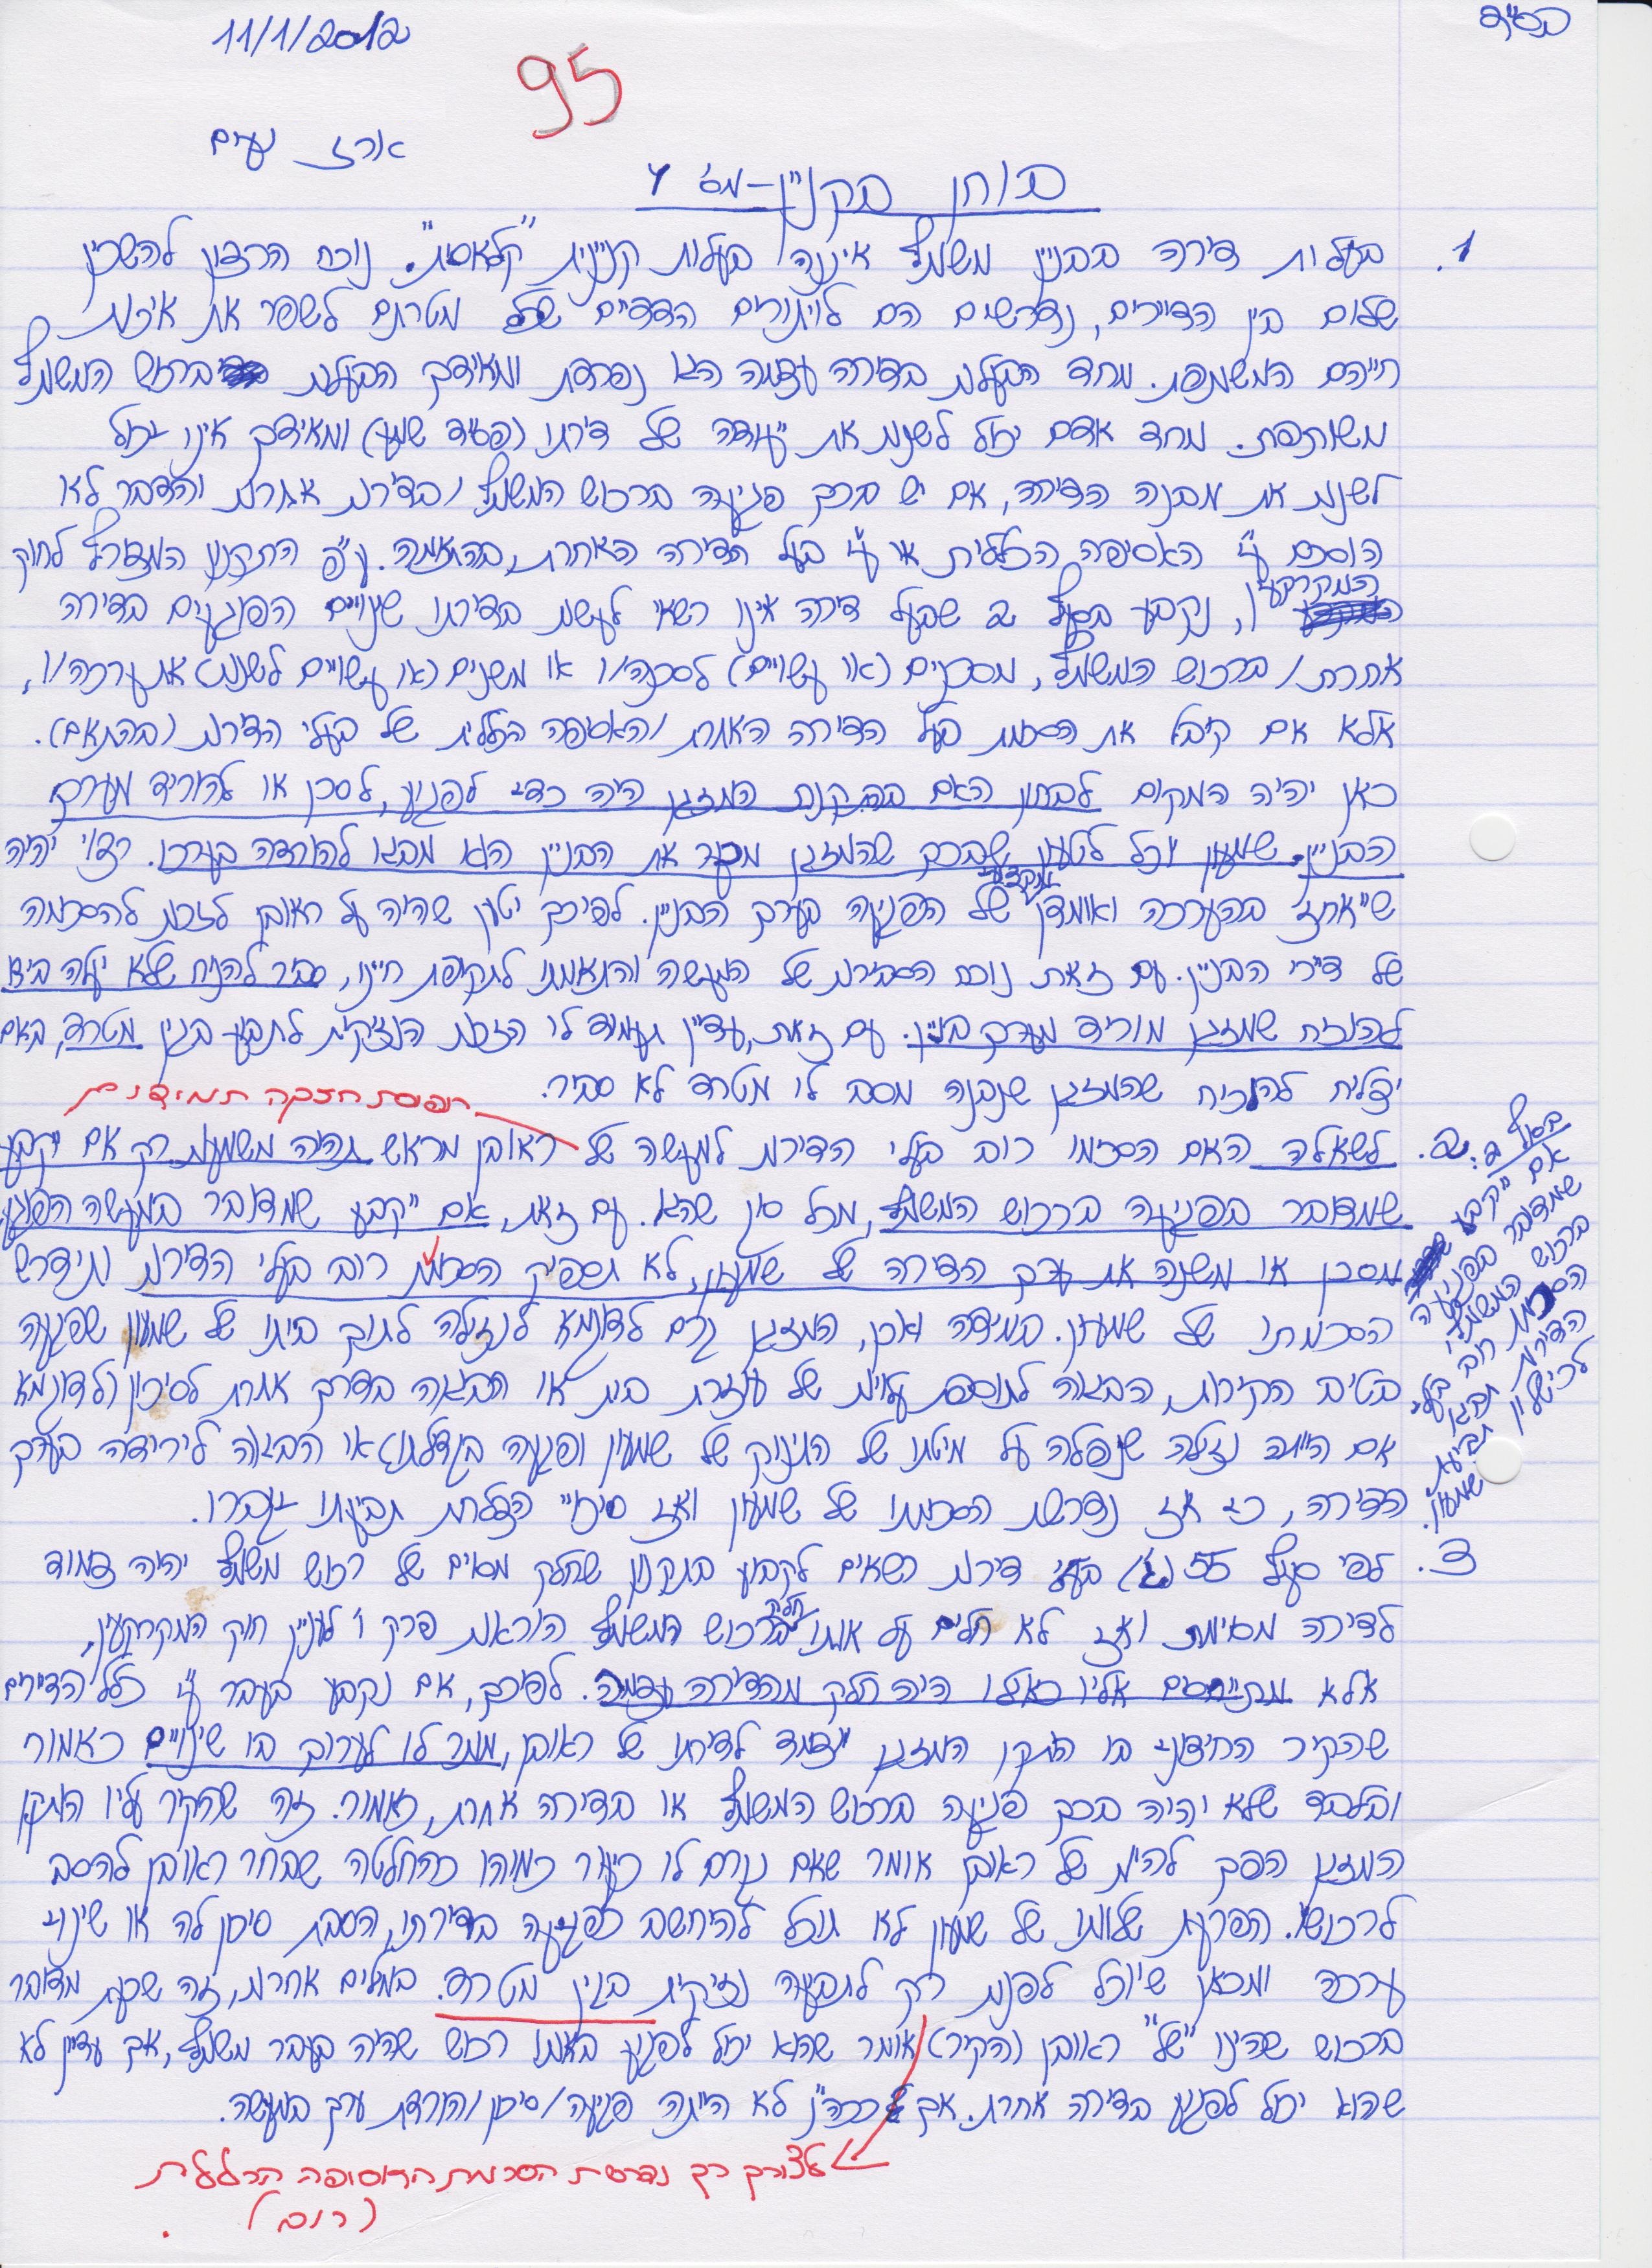 בס"ד
11/1/2012
95
ארז נעים
בוחן בקניין - מס' 4
1. בעלות דירה בבניין משותף איננה בעלות קניינית "קלאסית". נוכח הרצון להשכין
שלום בין הדיירים, נדרשים הם לויתורים הדדיים שכל מטרתם לשפר את איכות
חייהם המשותפת. מחד הבעלות בדירה עצמה היא נפרדת ומאידך הבעלות ברכוש המשותף
משותפת. מחד אדם יכול לשנות את ייעודה של דירתו (פס"ד שמע) ומאידך אינו יכול
לשנות את מבנה הדירה, אם יש בכך פגיעה ברכוש המשותף / בדירות אחרות והדבר לא
הוסכם ע"י האסיפה הכללית או ע"י בעל הדירה האחרת, בהתאמה. ע"פ התקנון המצורף לחוק
המקרקעין, נקבע בסעיף 2 שבעל דירה אינו רשאי לעשות בדירתו שינויים הפוגעים בדירה
אחרת / ברכוש המשותף, מסכנים (או עשויים) לסכנה/ו או משנים (או עשויים לשנות) את ערכה/ו,
אלא אם קיבל את הסכמת בעל הדירה האחרת / האסיפה הכללית של בעלי הדירות (בהתאם).
כאן יהיה המקום לבחון האם בהתקנת המזגן היה כדי לפגוע, לסכן או להוריד מערך
הבניין. שמעון יוכל לטעון שבכך שהמזגן מכער את הבניין הוא מביא להורדה בערכו. רצוי יהיה
שיאחז בהערכה ואומדן מקצועי של הפגיעה בערך הבניין. לפיכך יטען שהיה על ראובן לזכות להסכמה
של דיירי הבניין. עם זאת נוכח הסבירות של המעשה והתאמתו לתקופת חיינו, סביר להניח שלא יעלה בידו
להוכיח שמזגן מוריד מערך בניין. עם זאת, עדיין תעמוד לו הזכות הנזיקית לתבוע בגין מטרד, באם
יצליח להוכיח שהמזגן שנבנה מסב לו מטרד לא סביר.
תפיסת חזקה תמידנים
2. לשאלה האם הסכימו רוב בעלי הדירות למעשה של ראובן מראש תהיה משמעות רק אם ייקבע
שמדובר בפגיעה ברכוש המשותף, מכל סוג שהוא. עם זאת, אם ייקבע שמדובר במעשה הפוגע
מסכן או משנה את ערך הדירה של שמעון, לא תספיק הסכמת רוב בעלי הדירות ותידרש
הסכמתו של שמעון. במידה ואכן, המזגן גרם לדוגמא לנזילה לתוך ביתו של שמעון שפגעה
בטיב הקירות, הביאה לתוספת עלויות של עוזרת בית או הביאה בדרך אחרת לסיכון (לדוגמא
אם הייתה נזילה שנפלה על מיטתו של התינוק של שמעון ופגעה בגדילתו) או הביאה לירידה בערך
הדירה, כי אז נדרשת הסכמתו של שמעון ואז סיכויי הצלחת תביעתו יגברו.
בסעיף ב':
אם ייקבע
שמדובר בפגיעה
ברכוש המשותף
הסכמת רוב בעלי
הדירות תביא
לכישלון תביעת
שמעון.
3. לפי סעיף 55 (ג) בעלי דירות רשאים לקבוע בתקנון שחלק מסוים של רכוש משותף יהיה צמוד
לדירה מסוימת ואז לא חלים על אותו חלק ברכוש המשותף הוראות פרק ו' לעניין חוק המקרקעין,
אלא מתייחסים אליו כאילו היה חלק מהדירה עצמה. לפיכך, אם נקבע בעבר ע"י כלל הדיירים
שהקיר החיצוני בו הותקן המזגן ייצמד לדירתו של ראובן, מותר לו לערוך בו שינויים כאמור
ובלבד שלא יהיה בכך פגיעה ברכוש המשותף או בדירה אחרת, כאמור. זה שהקיר עליו הותקן
המזגן הפך להיות של ראובן אומר שאם נגרם לו כיעור כמוהו כהחלטה שבחר ראובן להסב
לרכושו. הפרעת שלוותו של שמעון לא תוכל להיחשב כפגיעה בדירתו, הסבת סיכון לה או שינוי
ערכה ומכאן שיוכל לפנות רק לתביעה נזיקית בגין מטרד. במילים אחרות, זה שכעת מדובר
ברכוש שהינו "של" ראובן (הקיר) אומר שהוא יכול לפגוע באותו רכוש שהיה בעבר משותף, אך עדיין לא
שהוא יכול לפגוע בדירה אחרת. אך ככה"נ לא הייתה פגיעה/סיכון/הורדת ערך במעשה.
לצורך כך נדרשת הסכמת האסיפה הכללית
(רוב).